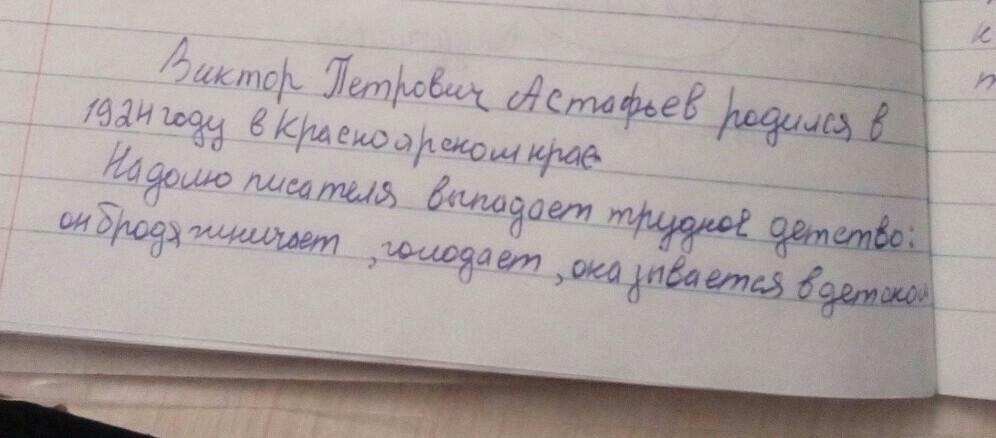 Виктор Петрович Астафьев родился в
1924 году в Красноярском крае
На долю писателя выпадает трудное детство:
он бродяжничает, голодает, оказывается в детском
к
т